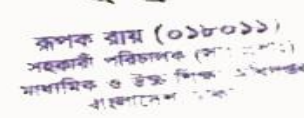 রূপক রায় (০১৮০১১)
সহকারী পরিচালক
মাধ্যমিক ও উচ্চ শিক্ষা
বাংলাদেশ